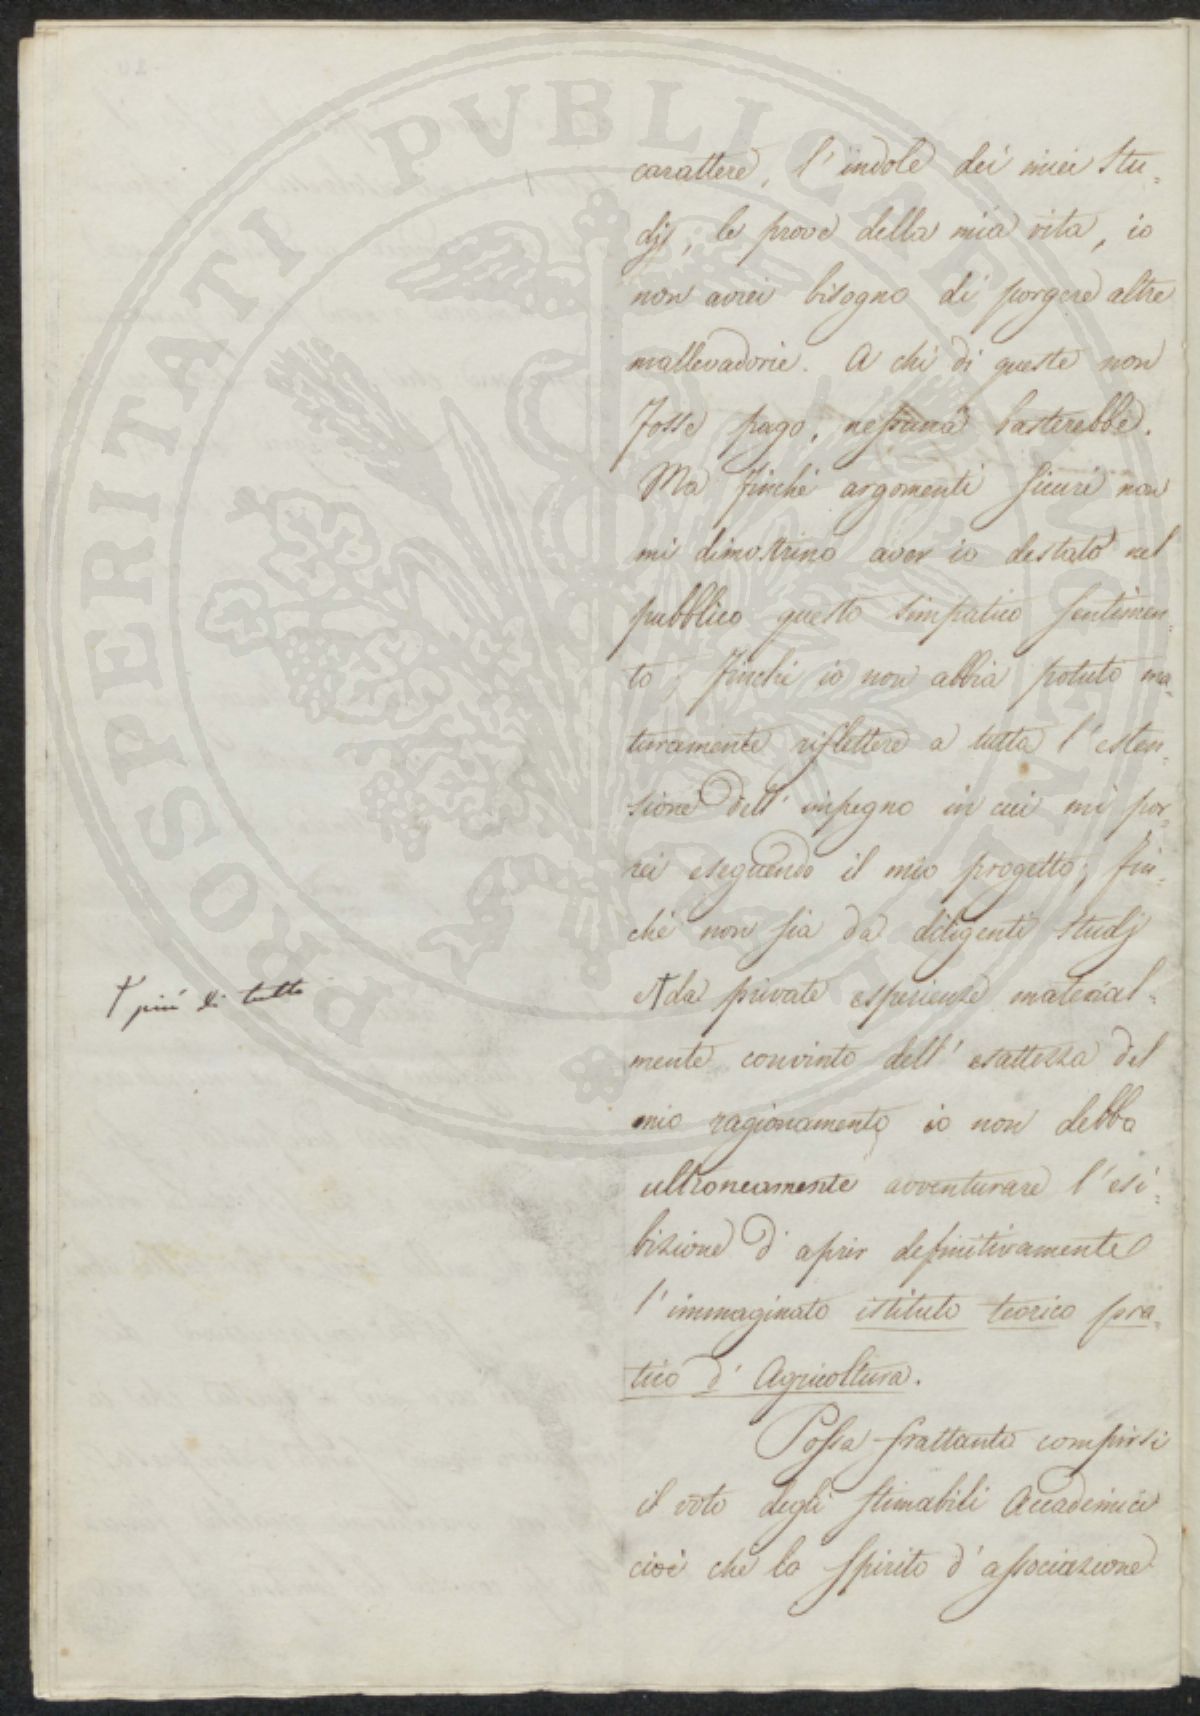 carattere, l'indole dei miei stu-
dj, le prove della mia vita, io
non avrei bisogno di porgere altre
mallevadorie. A chi di queste non
fosse pago, nessuna basterebbe.
Ma finché argomenti sicuri non
mi dimostrino aver io destato nel
pubblico questo simpatico sentimen-
to; finché io non abbia potuto ma-
turamente riflettere a tutta l'esten-
sione dell'impegno in cui mi por-
rei eseguendo il mio progetto; fin-
ché non sia da diligenti studj
e † da private esperienze material-
mente convinto dell'esattezza del
mio ragionamento, io non debbo
ultroneamente avventurare l'esi-
bizione d'aprir definitivamente
l'immaginato istituto teorico pra-
tico d'Agricoltura.
Possa frattanto compirsi
il voto degli stimabili Accademici
cioè che lo spirito d'associazione
† più di tutto
PROSPERITATI PVBLICAE AVGENDAE